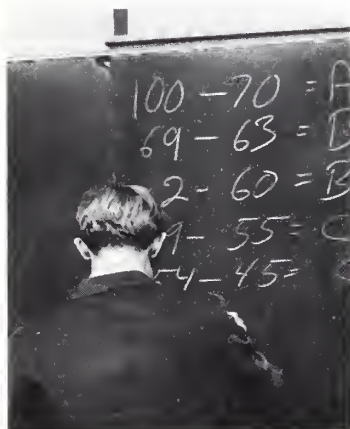 100 – 70 = A
69 – 63 = B
2 - 60 = B
9 - 55 = C
4 - 45 =